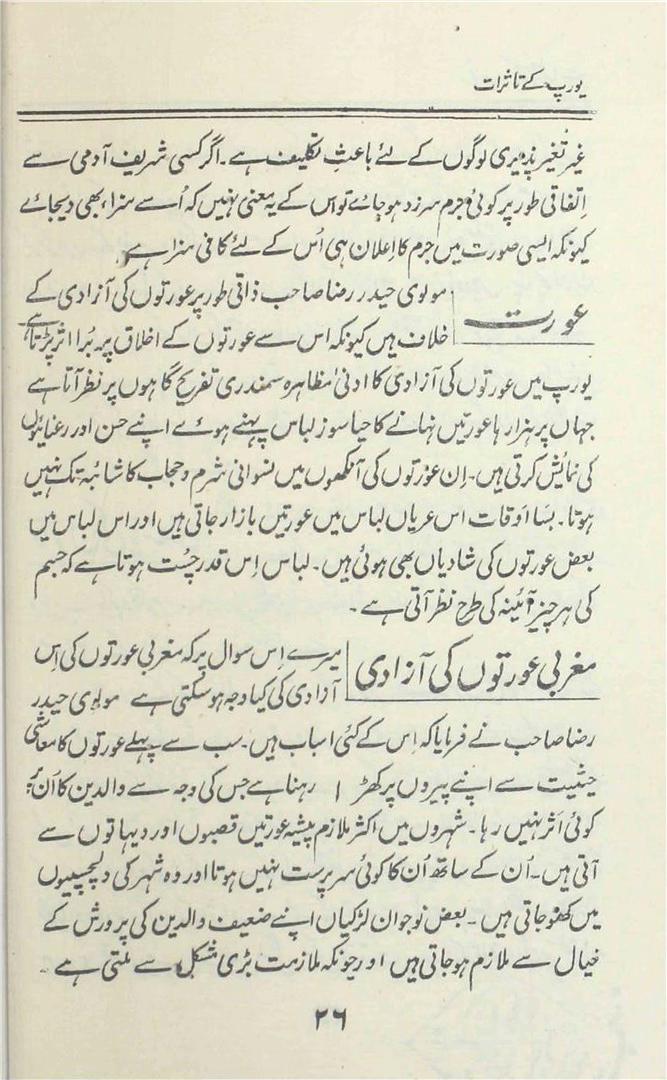 یورپ کے تاثرات
غیر تغیر پذیری لوگوں کے لئے باعثِ تکلیف ہے۔ اگر کسی شریف آدمی سے
اِتفاقی طور پر کوئی جرم سرزد ہو جائے تو اس کے یہ معنی نہیں کہ اُسے سزا بھی دیجائے
کیونکہ ایسی صورت میں جرم کا اعلان ہی اُس کے لئے کافی سزا ہے۔
عورت
مولوی حیدر رضا صاحب ذاتی طور پر عورتوں کی آزادی کے
خلاف ہیں کیونکہ اس سے عورتوں کے اخلاق پر بُرا اثر پڑتا ہے
یورپ میں عورتوں کی آزادی کا ادنیٰ مظاہرہ سمندری تفریح گاہوں پر نظر آتا ہے
جہاں پر ہزارہا عورتیں نہانے کا حیا سوز لباس پہنے ہوئے اپنے حسن اور رعنائیوں
کی نمائش کرتی ہیں۔ اِن عورتوں کی آنکھوں میں نسوانی شرم و حجاب کا شائبہ تک نہیں
ہوتا۔ بسا اوقات اس عریاں لباس میں عورتیں بازار جاتی ہیں اور اس لباس میں
بعض عورتوں کی شادیاں بھی ہوئی ہیں۔ لباس اِس قدر چُست ہوتا ہے کہ جسم
کی ہر چیز آئینہ کی طرح نظر آتی ہے۔
مغربی عورتوں کی آزادی
میرے اِس سوال پر کہ مغربی عورتوں کی اِس
آزادی کی کیا وجہ ہو سکتی ہے مولوی حیدر
رضا صاحب نے فرمایا کہ اِس کے کئی اسباب ہیں۔ سب سے پہلے عورتوں کا معاشی
حیثیت سے اپنے پیروں پر کھڑا رہنا ہے جس کی وجہ سے والدین کا اُن پر
کوئی اثر نہیں رہا۔ شہروں میں اکثر ملازم پیشہ عورتیں قصبوں اور دیہاتوں سے
آتی ہیں۔ اُن کے ساتھ اُن کا کوئی سرپرست نہیں ہوتا اور وہ شہر کی دلچسپیوں
میں کھو جاتی ہیں۔ بعض نوجوان لڑکیاں اپنے ضعیف والدین کی پرورش کے
خیال سے ملازم ہو جاتی ہیں اور چونکہ ملازمت بڑی مشکل سے ملتی ہے۔
۲۶